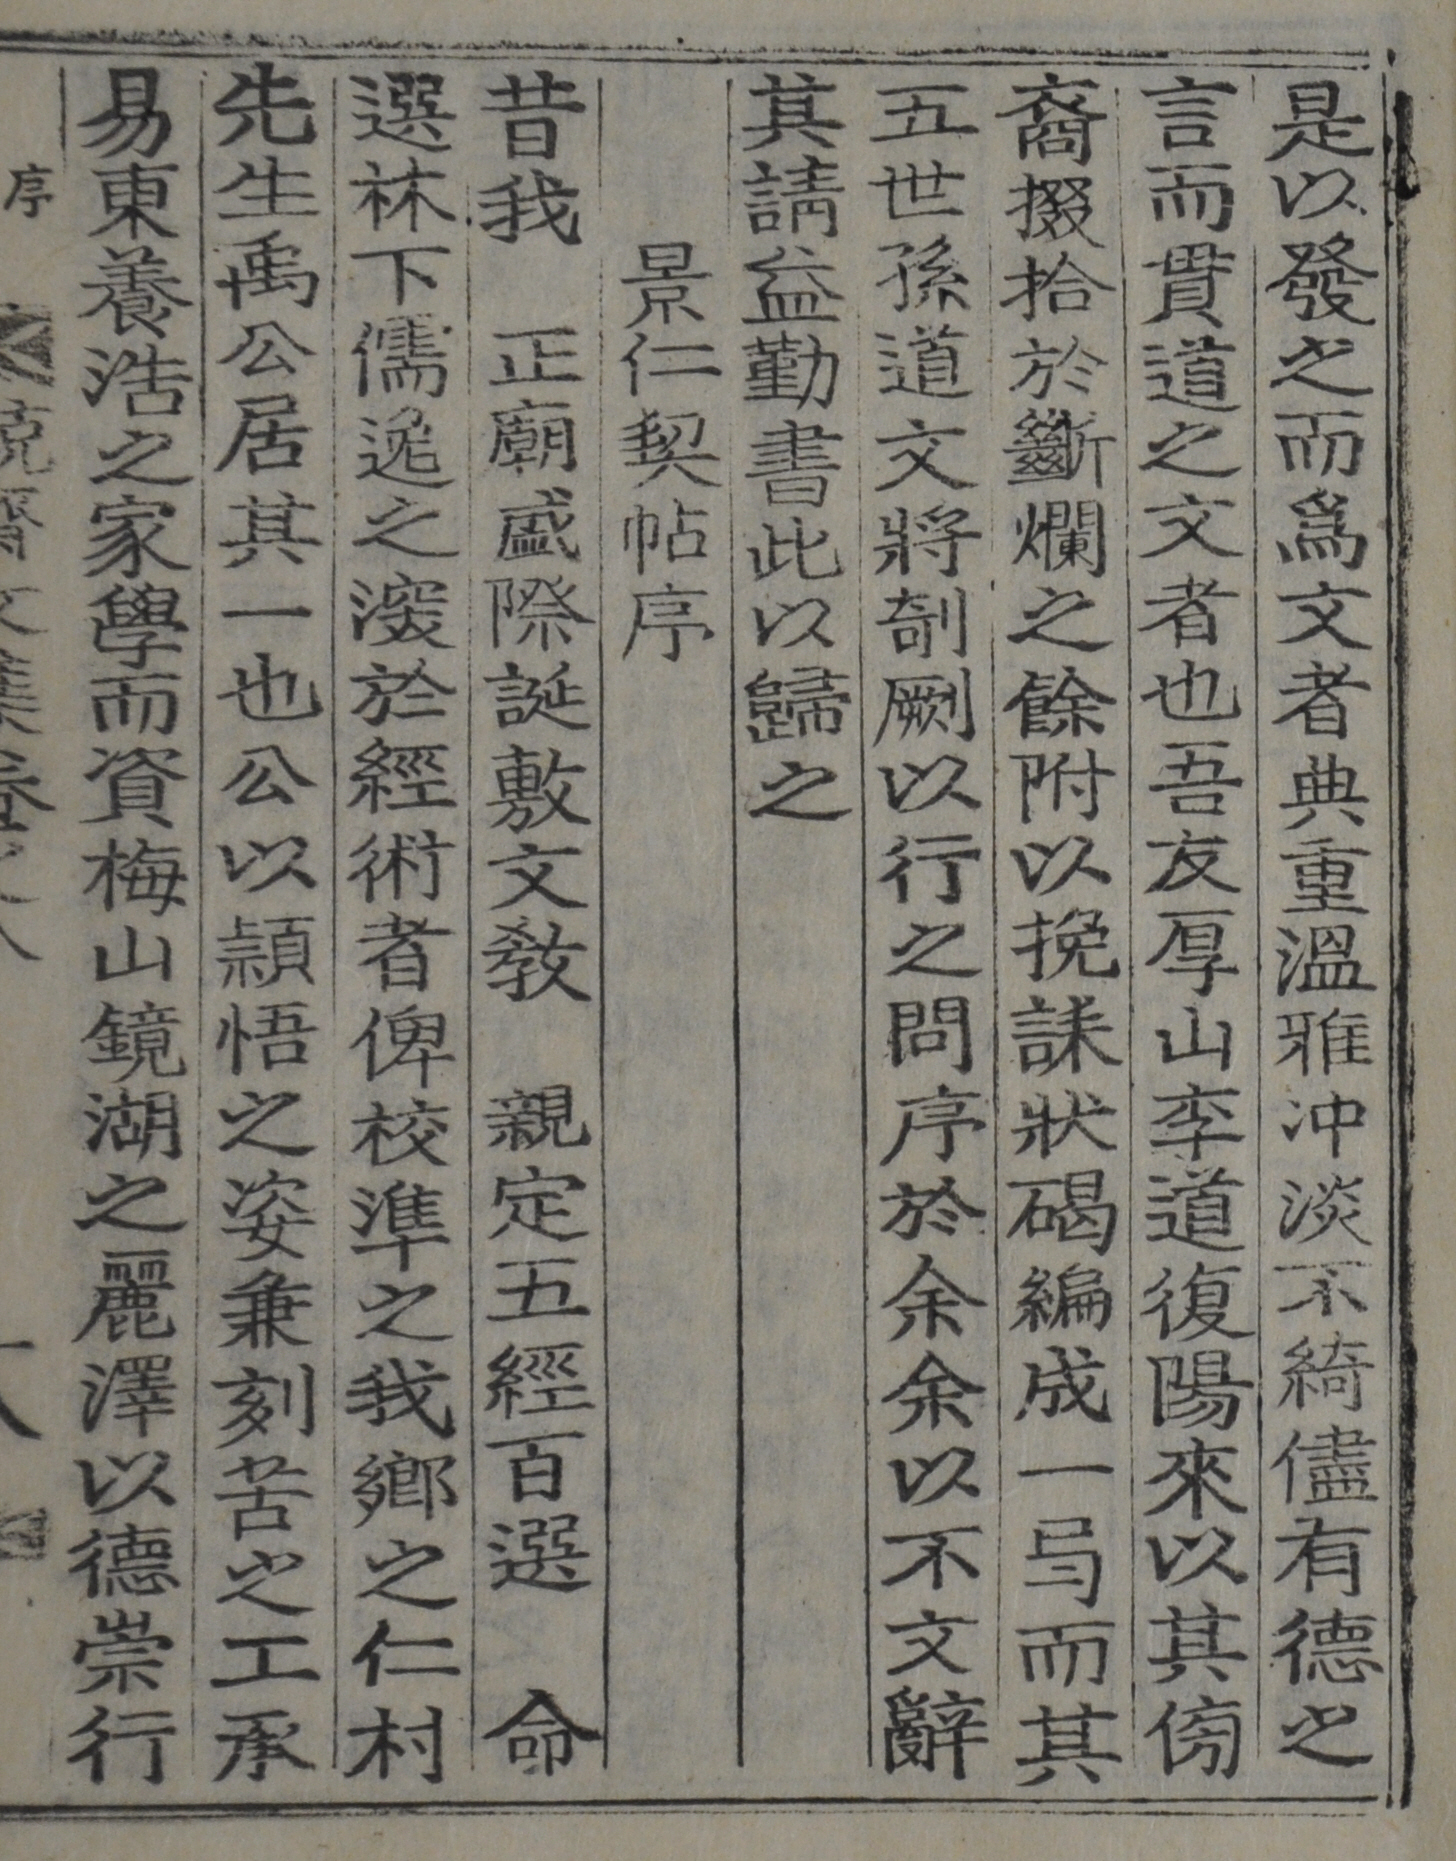 是以發之而爲文者典重溫雅冲淡不綺儘有德之
言而貫道之文者也吾友厚山李道復陽來以其傍
裔掇拾於斷爛之餘附以挽誄狀碣編成一弓而其
五世孫道文將剞劂以行之問序於余余以不文辭
其請益勤書此以歸之
景仁契帖序
昔我 正廟盛際誕敷文敎 親定五經百選 命
選林下儒逸之深於經術者俾校準之我鄕之仁村
先生禹公居其一也公以穎悟之姿兼刻苦之工承
易東養浩之家學而資梅山鏡湖之麗澤以德崇行
序
齋文集卷之八
十八